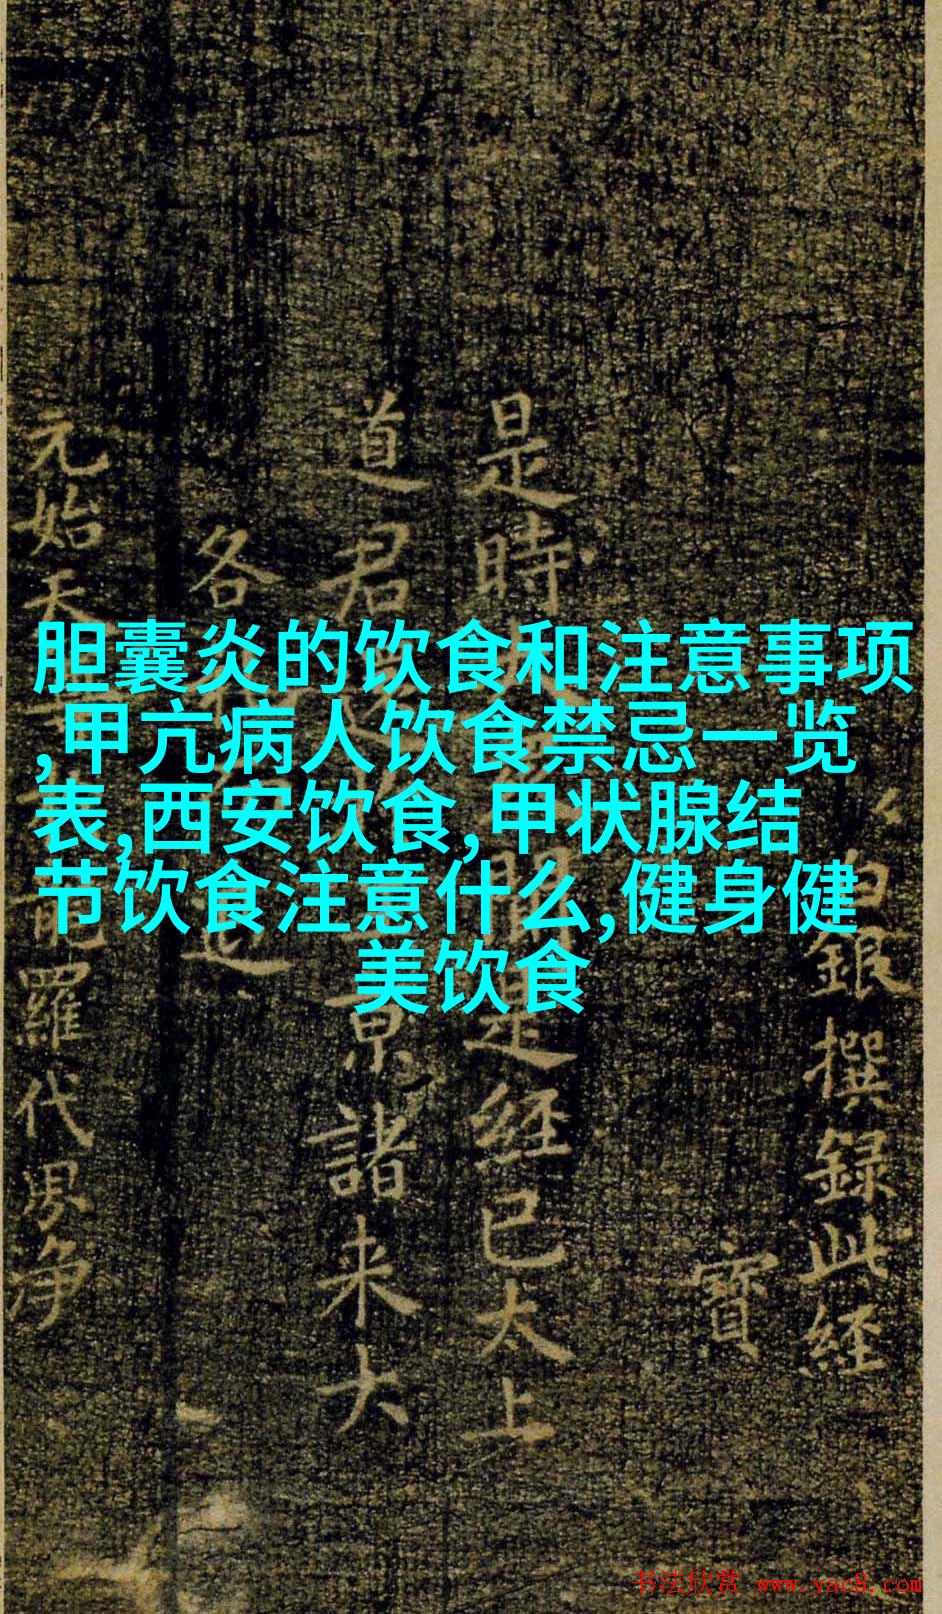 胆囊炎的饮食和注意事项
,甲亢病人饮食禁忌一览
表,西安饮食,甲状腺结
节饮食注意什么,健身健
美饮食
白銀撰録此經
寶
是時
開是經已太上
道君
京諸来大
各
元始天
龍羅代男净
书法欣赏 www.yac8.com